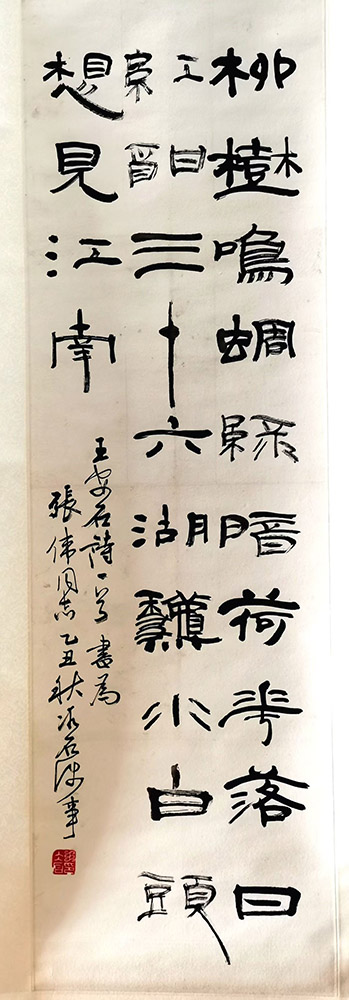 柳樹鳴蜩綠暗荷華落日
紅酣三十六湖水白頭
想見江南
王安石詩一首書為
張偉同志乙丑秋石